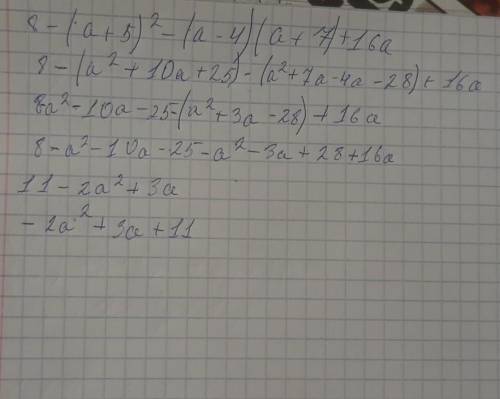 8 - (a + 5)² - (a - 4)(a + 7) + 16a
8 - (a² + 10a + 25) - (a² + 7a - 4a - 28) + 16a
8a² - 10a - 25 - (a² + 3a - 28) + 16a
8 - a² - 10a - 25 - a² - 3a + 28 + 16a
11 - 2a² + 3a
- 2a² + 3a + 11